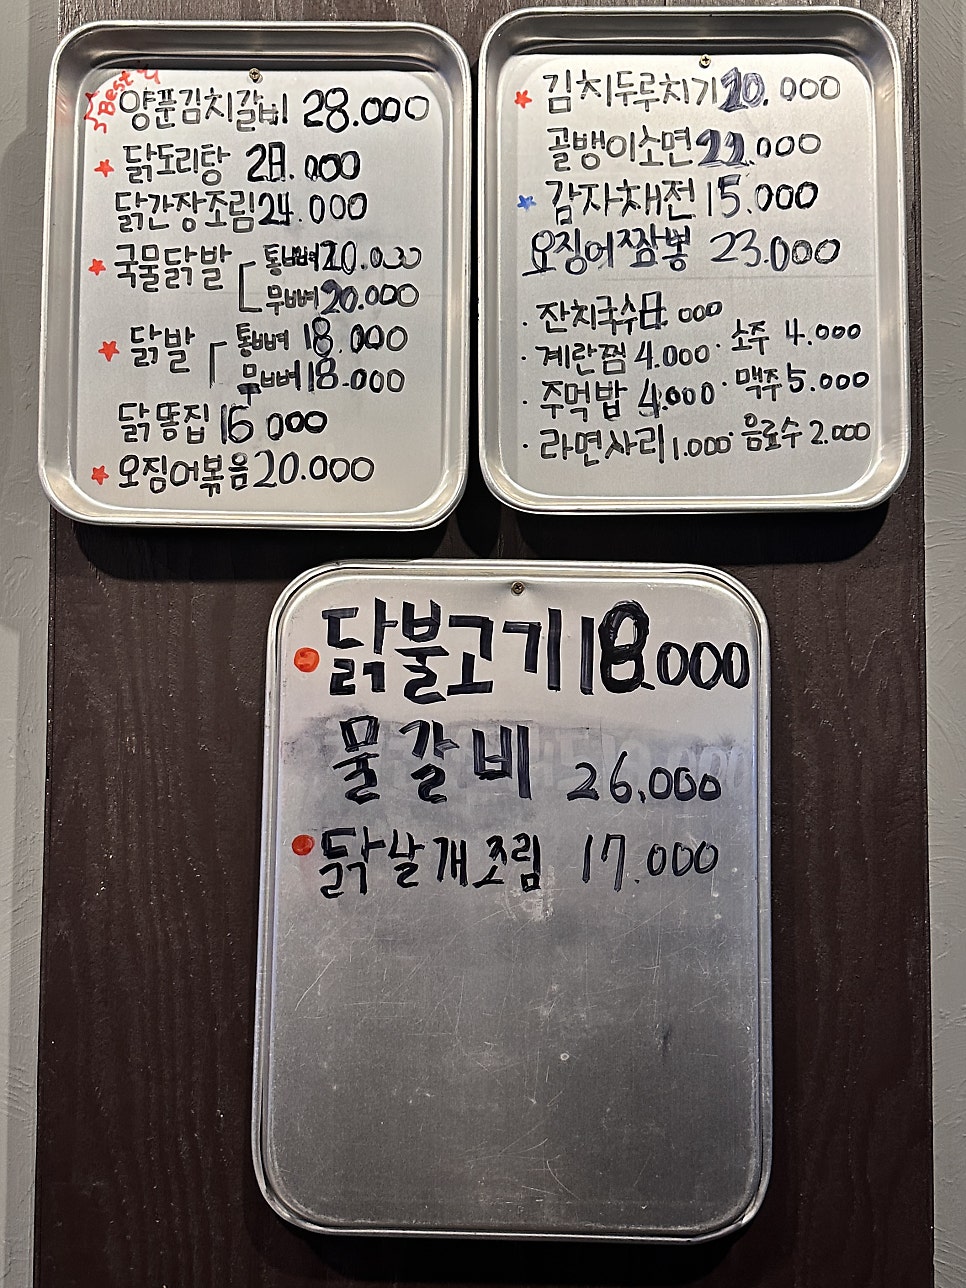 Best
양푼김치갈비 28.000
닭도리탕 28.000
닭간장조림 24.000
국물닭발 통뼈 20.000
무뼈 20.000
닭발 통뼈 18.000
무뼈 18.000
닭똥집 16000
오징어볶음 20.000
김치두루치기 20.000
골뱅이소면 22.000
감자채전 15.000
오징어짬뽕 23.000
· 잔치국수 .000
· 계란찜 4.000
· 주먹밥 4.000
· 라면사리 1.000
· 소주 4.000
· 맥주 5.000
· 음료수 2.000
닭불고기 18.000
물갈비 26,000
닭날개조림 17.000